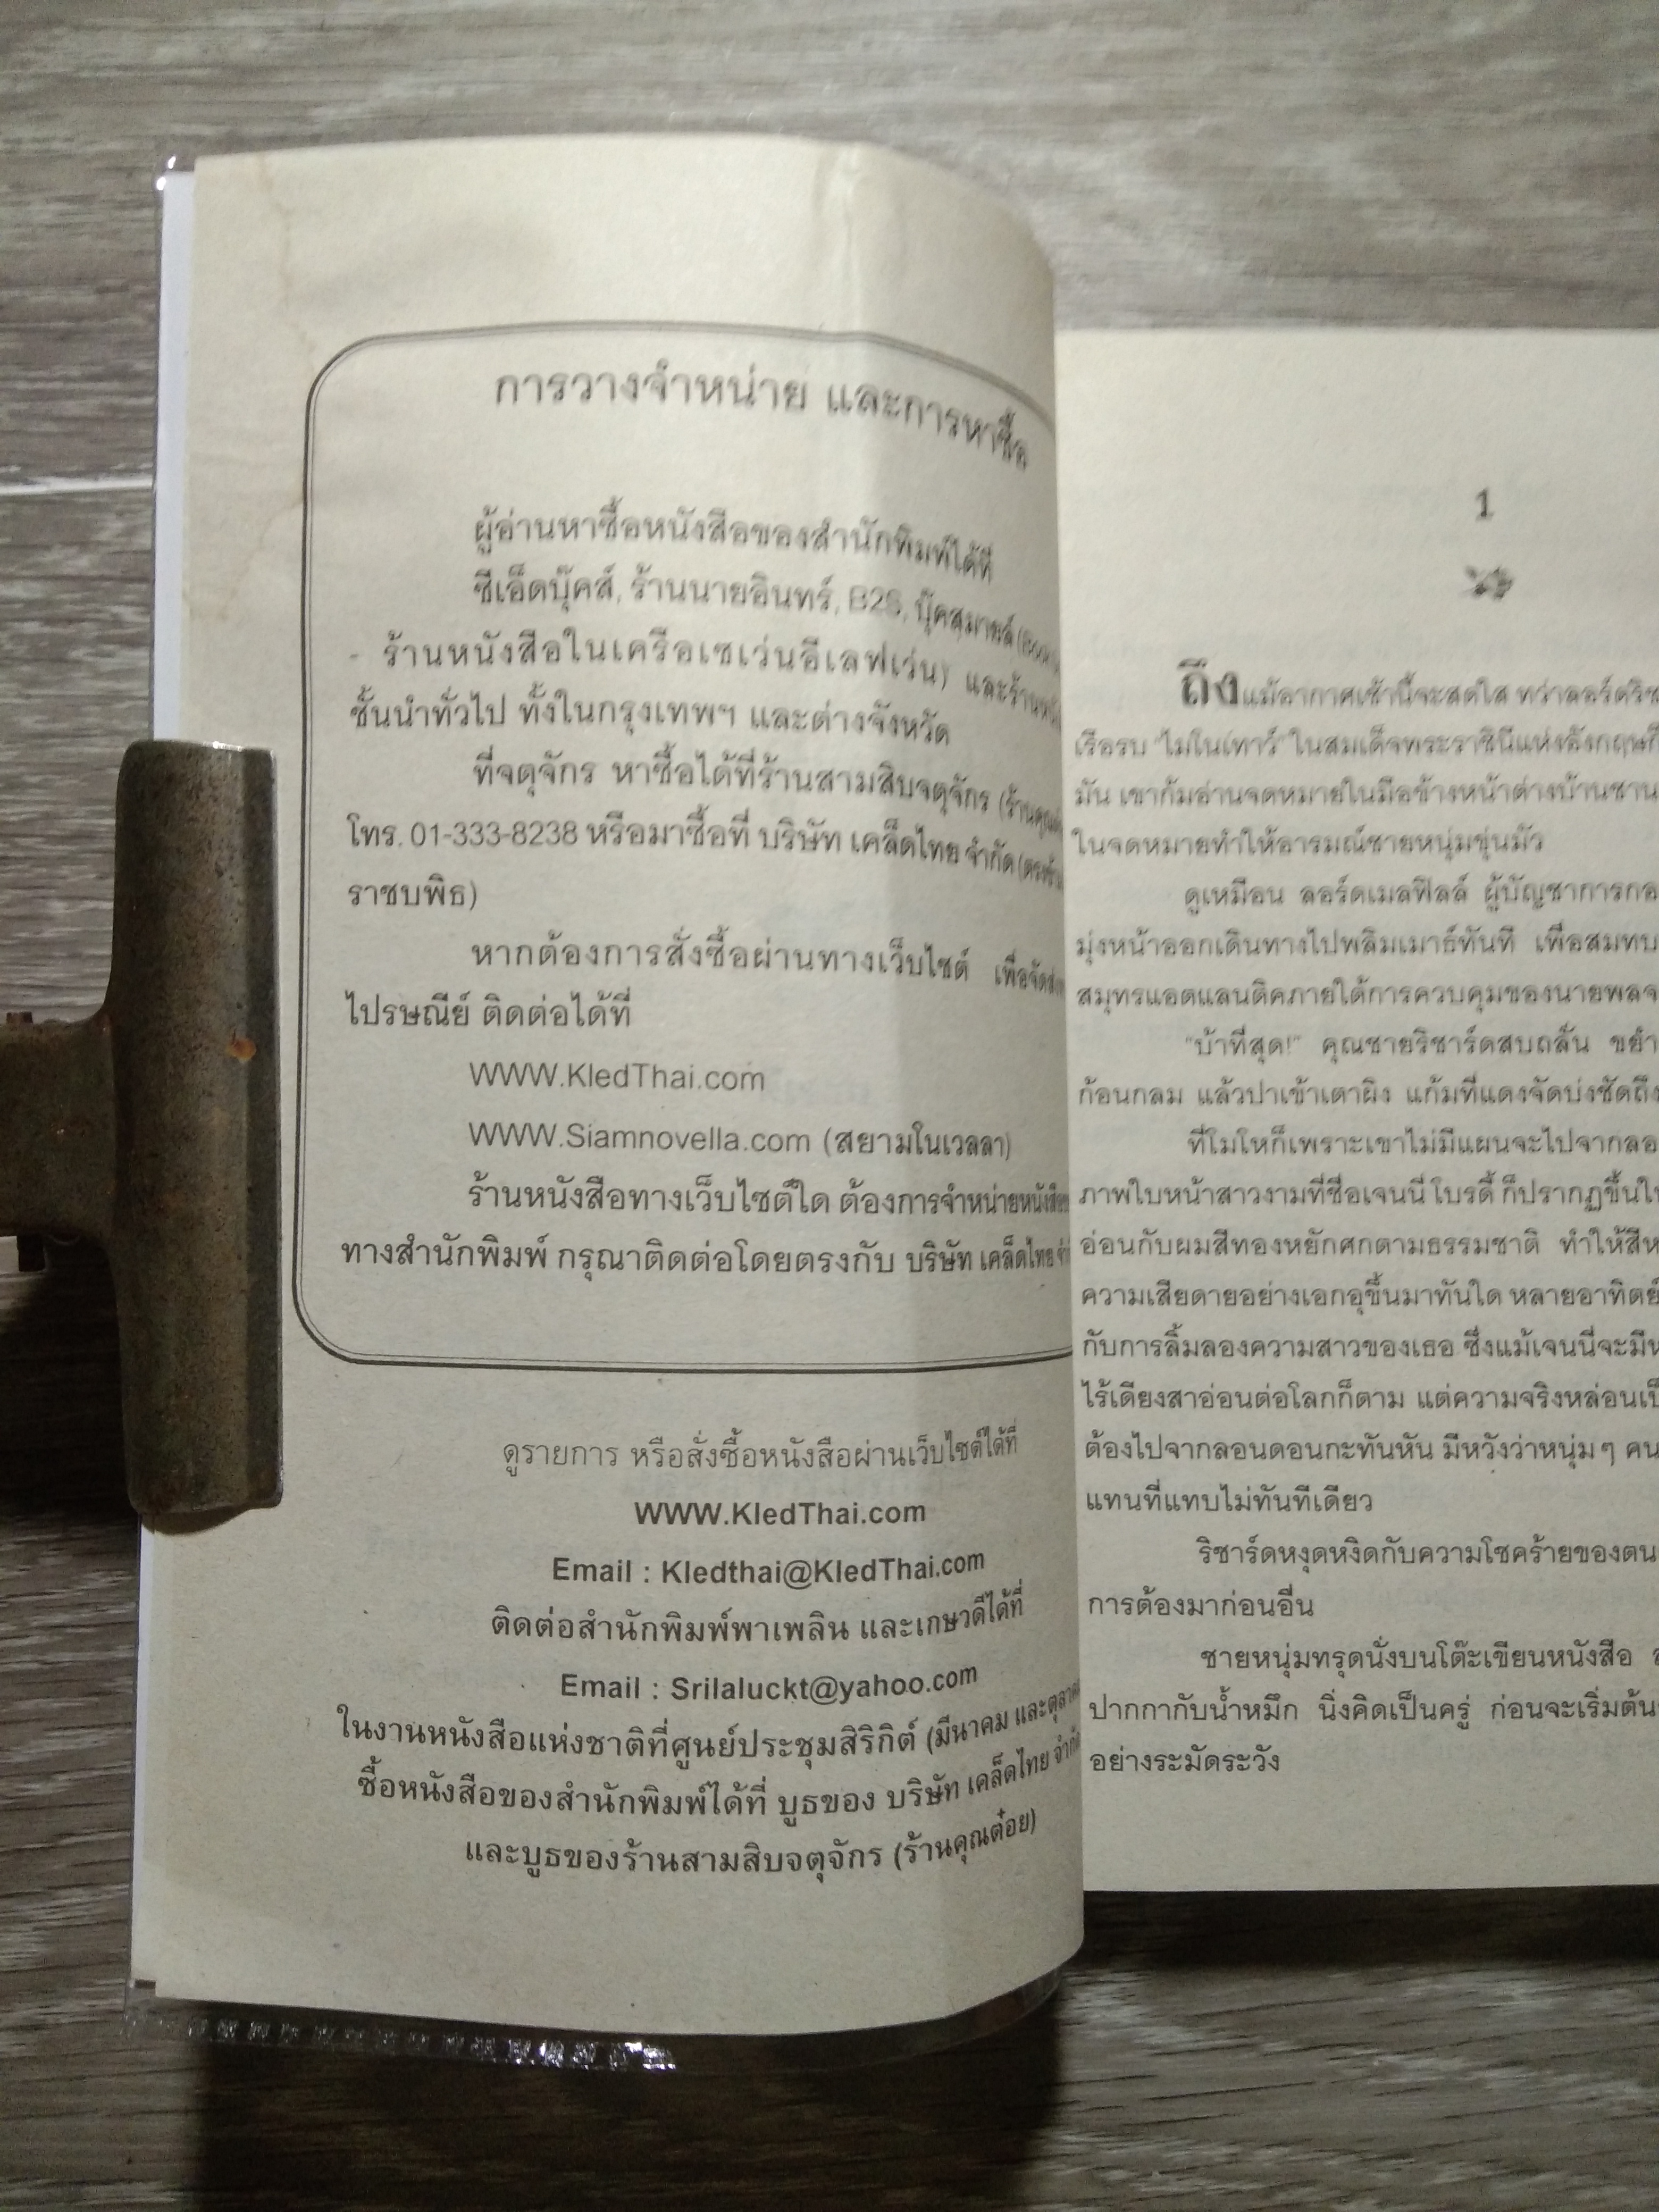 การวางจำหน่าย และการหาซื้อ
ผู้อ่านหาซื้อหนังสือของสำนักพิมพ์ได้ที่
ซีเอ็ดบุ๊คส์, ร้านนายอินทร์, B2S, บุ๊คสมายล์
- ร้านหนังสือในเครือเซเว่นอีเลฟเว่น) และร้านหนัง
ชั้นนำทั่วไป ทั้งในกรุงเทพฯ และต่างจังหวัด
ที่จตุจักร หาซื้อได้ที่ร้านสามสิบจตุจักร (ร้านคุณ
โทร. 01-333-8238 หรือมาซื้อที่ บริษัท เคล็ดไทย จำกัด (ตรงข้าม
ราชบพิธ)
หากต้องการสั่งซื้อผ่านทางเว็บไซต์ เพื่อจัดส่ง
ไปรษณีย์ ติดต่อได้ที่
WWW.KledThai.com
WWW.Siamnovella.com (สยามโนเวลลา)
ร้านหนังสือทางเว็บไซต์ใด ต้องการจำหน่ายหนังสือ
ทางสำนักพิมพ์ กรุณาติดต่อโดยตรงกับ บริษัท เคล็ดไทย
ดูรายการ หรือสั่งซื้อหนังสือผ่านเว็บไซต์ได้ที่
WWW.KledThai.com
Email : Kledthai@KledThai.com
ติดต่อสำนักพิมพ์พาเพลิน และเกษวดีได้ที่
Email : Srilaluckt@yahoo.com
ในงานหนังสือแห่งชาติที่ศูนย์ประชุมสิริกิต์ (มีนาคม และตุลาคม
ซื้อหนังสือของสำนักพิมพ์ได้ที่ บูธของ บริษัท เคล็ดไทย จำกัด
และบูธของร้านสามสิบจตุจักร (ร้านคุณต๋อย)
1
ถึงแม้อากาศเช้านี้จะสดใส ทว่าลอร์ดริช
เรือรบ "ไมโนเทาร์" ในสมเด็จพระราชินีแห่งอังกฤษก็
มัน เขาก้มอ่านจดหมายในมือข้างหน้าต่างบ้านชาน
ในจดหมายทำให้อารมณ์ชายหนุ่มขุ่นมัว
ดูเหมือน ลอร์ดเมลฟิลล์ ผู้บัญชาการกอ
มุ่งหน้าออกเดินทางไปพลิมเมาธ์ทันที เพื่อสมทบ
สมุทรแอตแลนติคภายใต้การควบคุมของนายพลจ
"บ้าที่สุด!" คุณชายริชาร์ดสบถลั่น ขยำ
ก้อนกลม แล้วปาเข้าเตาผิง แก้มที่แดงจัดบ่งชัดถึง
ที่โมโหก็เพราะเขาไม่มีแผนจะไปจากลอ
ภาพใบหน้าสาวงามที่ชื่อเจนนี่ โบรดี้ ก็ปรากฏขึ้นใน
อ่อนกับผมสีทองหยักศกตามธรรมชาติ ทำให้สีห
ความเสียดายอย่างเอกอุขึ้นมาทันใด หลายอาทิตย์
กับการลิ้มลองความสาวของเธอ ซึ่งแม้เจนนี่จะมีห
ไร้เดียงสาอ่อนต่อโลกก็ตาม แต่ความจริงหล่อนเป็
ต้องไปจากลอนดอนกะทันหัน มีหวังว่าหนุ่มๆ คน
แทนที่แทบไม่ทันทีเดียว
ริชาร์ดหงุดหงิดกับความโชคร้ายของตน
การต้องมาก่อนอื่น
ชายหนุ่มทรุดนั่งบนโต๊ะเขียนหนังสือ
ปากกากับน้ำหมึก นิ่งคิดเป็นครู่ ก่อนจะเริ่มต้น
อย่างระมัดระวัง